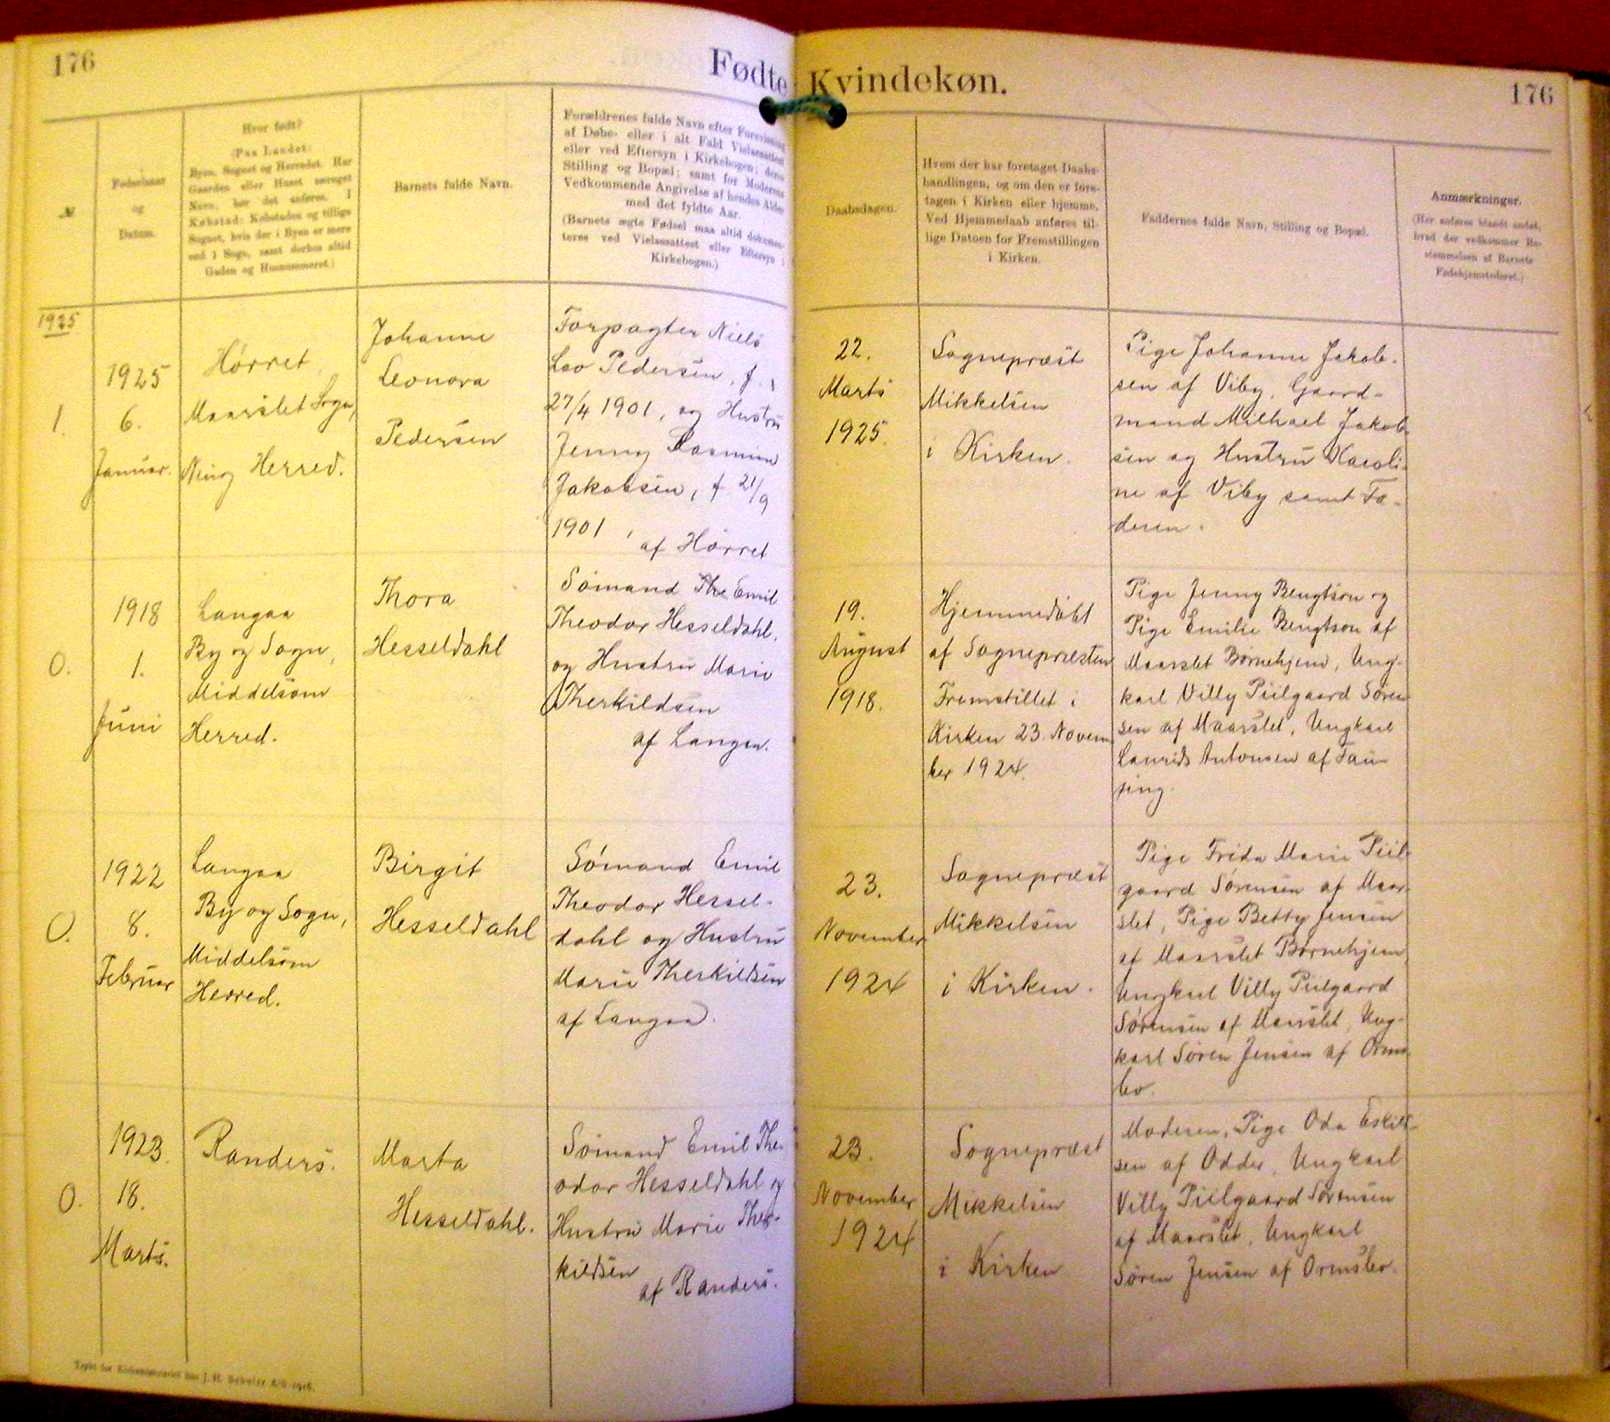 176
Fødte
Kvindekøn.
176
№
Fødselsaar
og
Datum.
Hvor født?
(Paa Landet:
Byen, Sognet og Herredet. Har
Gaarden eller Huset særeget
Navn, bør det anføres. I
Købstad: Købstaden og tillige
Sognet, hvis der i Byen er mere
end 1 Sogn, samt derhos altid
Gaden og Husnummeret.)
Barnets fulde Navn.
Forældrenes fulde Navn efter Forevisning
af Døbe- eller i alt Fald Vielsesattest
eller ved Eftersyn i Kirkebogen; deres
Stilling og Bopæl; samt for Moderens
Vedkommende Angivelse af hendes Alder
med det fyldte Aar.
(Barnets ægte Fødsel maa altid dokumen-
teres ved Vielsesattest eller Eftersyn i
Kirkebogen.)
Daabsdagen.
Hvem der har foretaget Daabs-
handlingen, og om den er fore-
tagen i Kirken eller hjemme.
Ved Hjemmedaab anføres til-
lige Datoen for Fremstillingen
i Kirken.
Faddernes fulde Navn, Stilling og Bopæl.
Anmærkninger.
(Her anføres blandt andet,
hvad der vedkommer Be-
stemmelsen af Barnets
Fødehjemstedsret.)
1925
1.
1925
6.
Januar.
Hørret
Maarslet Sogn,
Ning Herred.
Johanne
Leonora
Pedersen
Forpagter Niels
Leo Pedersen, f.
27/4 1901, og Hustru
Jenny Rasmine
Jakobsen, f 21/9
1901,
af Hørret
22.
Marts
1925.
Sognepræst
Mikkelsen
i Kirken.
Pige Johanne Jakob-
sen af Viby, Gaard-
mand Michael Jakob-
sen og Hustru Karoli-
ne af Viby samt Fa-
deren.
O.
1918
1.
Juni
Langaa
By og Sogn,
Middelsom
Herred.
Thora
Hesseldahl
Sømand Emil
Theodor Hesseldahl,
og Hustru Marie
Therkildsen
af Langaa.
19.
August
1918.
Hjemmedøbt
af Sognepræsten
Fremstillet i
Kirken 23. Novem
ber 1924.
Pige Jenny Bengtson og
Pige Emilie Bengtson af
Maarslet Børnehjem, Ung-
karl Villy Piilgaard Søren-
sen af Maarslet, Ungkarl
Laurids Antonsen af Fau-
sing.
O.
1922
8.
Februar
Langaa
By og Sogn,
Middelsom
Herred.
Birgit
Hesseldahl
Sømand Emil
Theodor Hessel-
dahl og Hustru
Marie Therkildsen
af Langaa.
23.
November
1924
Sognepræst
Mikkelsen
i Kirken.
Pige Frida Marie Piil-
gaard Sørensen af Maar-
slet, Pige Betty Jensen
af Maarslet Børnehjem,
Ungkarl Villy Piilgaard
Sørensen af Maarslet, Ung-
karl Søren Jensen af Orms-
lev.
O.
1923.
18.
Marts.
Randers.
Marta
Hesseldahl.
Sømand Emil The-
odor Hesseldahl og
Hustru Marie Ther-
kildsen
af Randers.
23.
November
1924
Sognepræst
Mikkelsen
i Kirken
Moderen, Pige Oda Eskild-
sen af Odder, Ungkarl
Villy Piilgaard Sørensen
af Maarslet, Ungkarl
Søren Jensen af Ormslev.